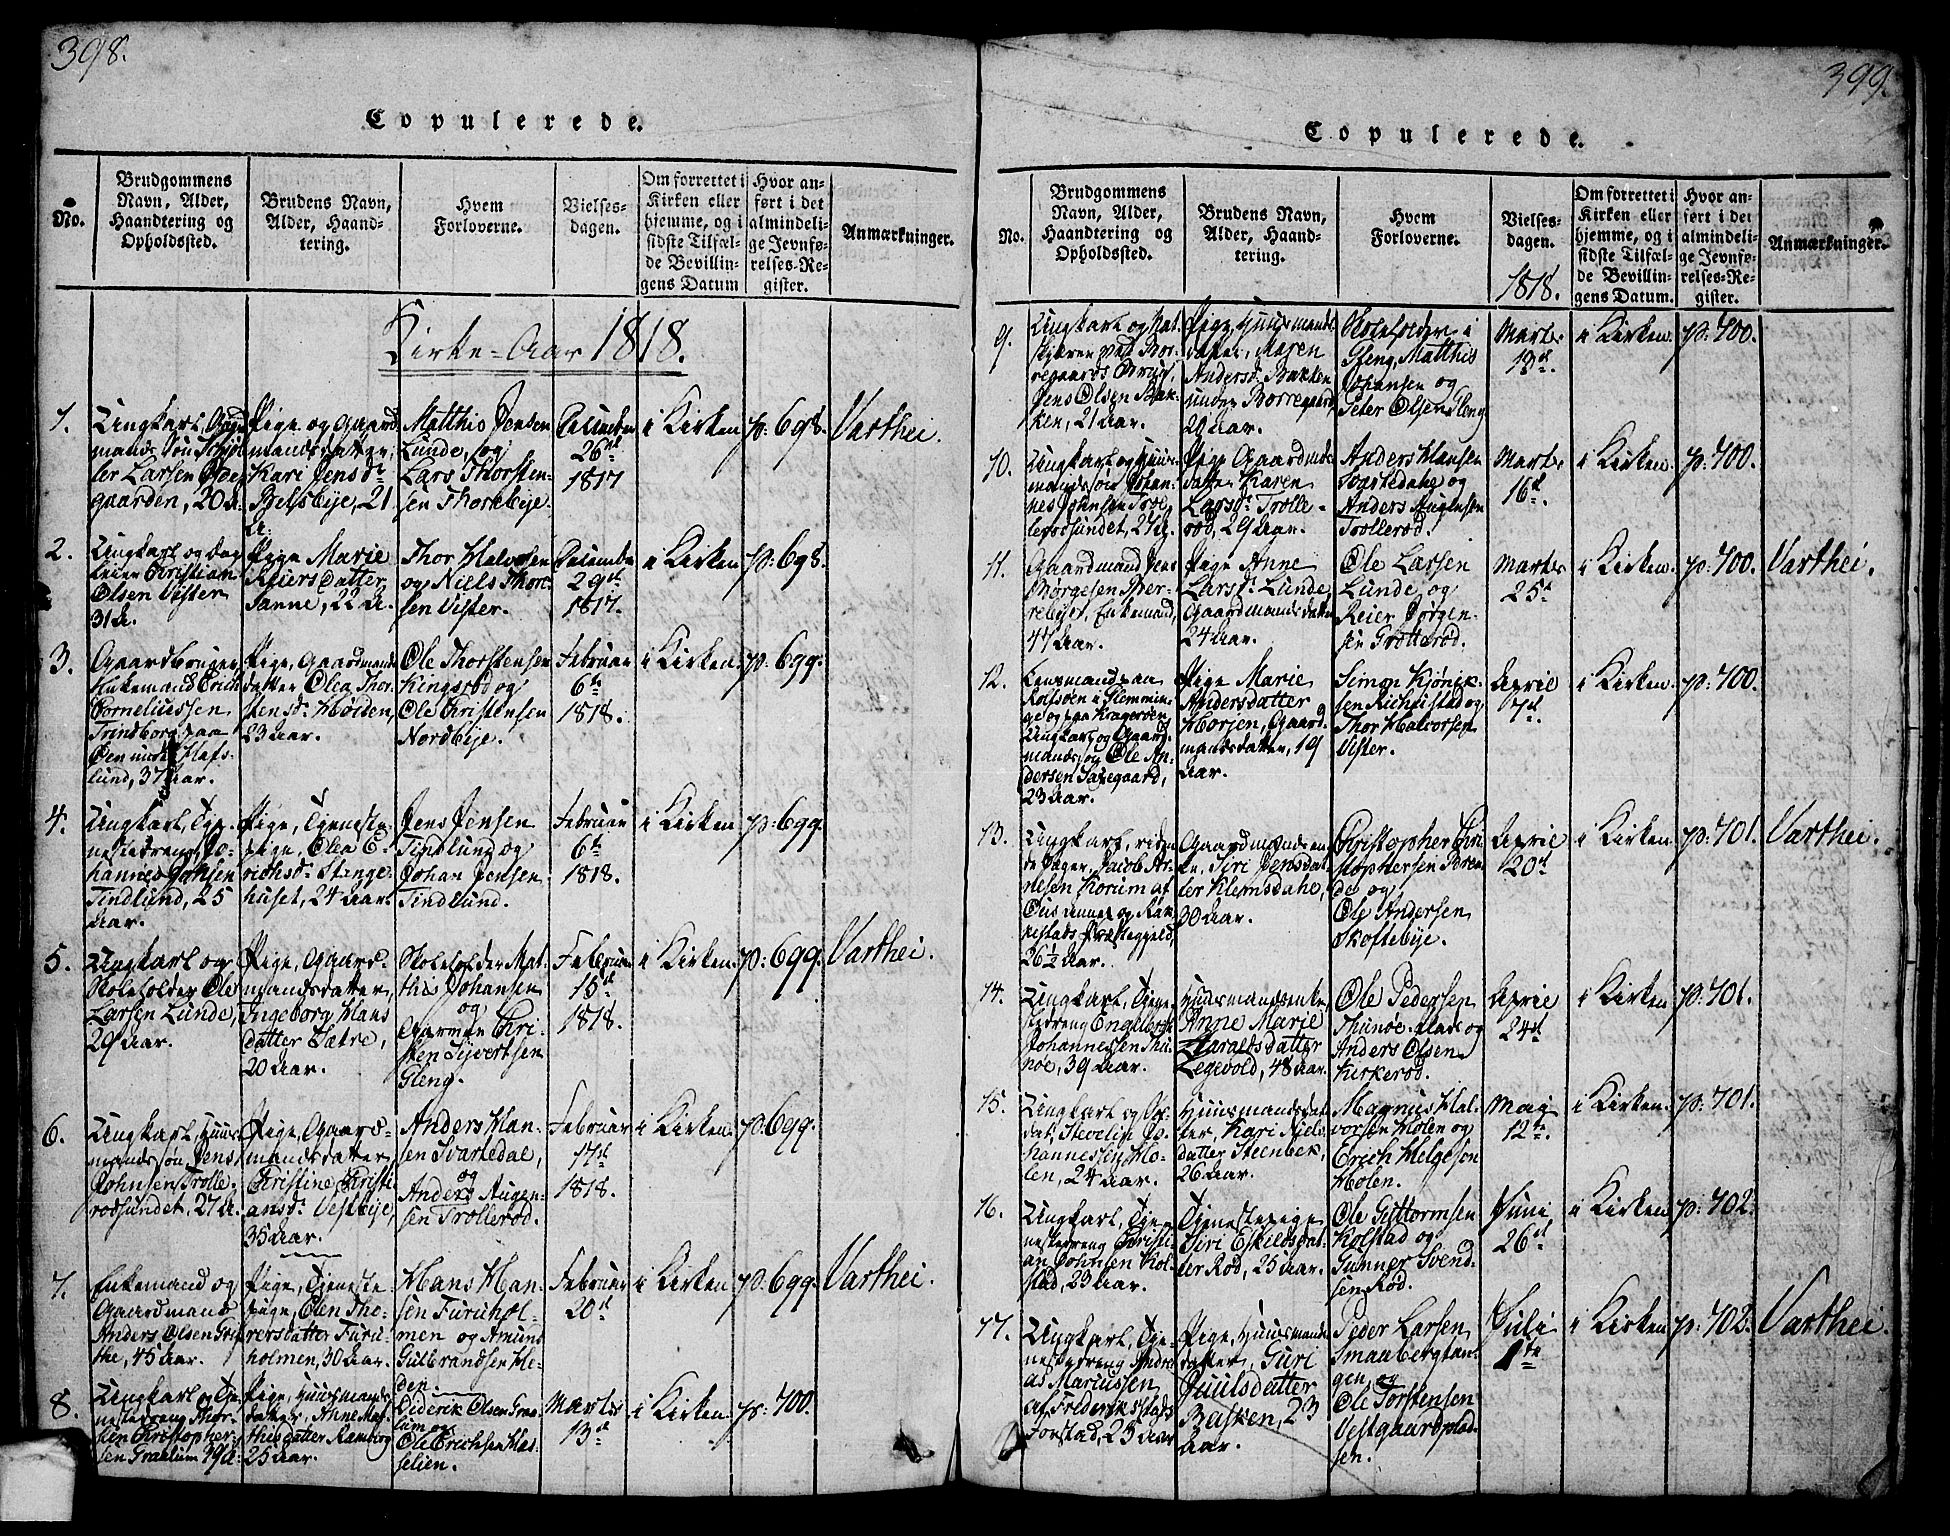 398.
Copulerede.
No.
Brudgommens
Navn, Alder,
Haandtering og
Opholdssted.
Brudens Navn,
Alder, Haand-
tering.
Hvem
Forloverne.
Vielses-
dagen.
Om forrettet i
Kirken eller
hjemme, og i
sidste Tilfæl-
de Bevillin-
gens Datum
Hvor an-
ført i det
almindeli-
ge Jevnfø-
relses-Re-
gister.
Anmærkninger.
Kirke-Aar 1818.
1.
Ungkarl,
mands Søn
ler Larsen
gaarden, 20 A.
Pige og Gaard
mandsdatter,
Kari Jensdr
21
A.
Matthis Jensen
Lunde, og
Lars Thorsten-
sen Thorkebye.
December
26de
1817
i Kirken
p: 698.
Varthei.
2.
Ungkarl og
Christian
Olsen Vister
31 A.
Pige Marie
Reiers Datter
Sanne, 22 A.
Thor Halvorsen
og Niels Thor-
sen Vister.
December
29de
1817.
i Kirken
p: 698.
3.
Gaardbruger
Enkemand Erich
Corneliussen
Trindborg paa
Øen under Hafs-
lund, 37 Aar.
Pige, Gaardmands
datter Olea Thor-
stensdr Høiden,
23 Aar.
Ole Thorstensen
Kingsrød og
Ole Christensen
Nordbye.
Februar
6te
1818.
i Kirken.
p: 699.
4.
Ungkarl, Tje-
nestedreng Jo-
hannes Johnsen
Tindlund, 25
Aar.
Pige, Tjeneste-
pige, Olea E-
richsdr Stenge-
huset, 24 Aar.
Jens Jensen
Tindlund og
Johan Jensen
Tindlund.
Februar
6te
1818.
i Kirken
p: 699.
5.
Ungkarl og
Skoleholder Ole
Larsen Lunde,
29 Aar.
Pige, Gaard-
mandsdatter,
Ingeborg Hans
datter Sætre,
20 Aar.
Skoleholder Mat-
this Johansen
og
Gaarmen Chri-
sten Syvertsen
Gleng.
Februar
15de
1818.
i Kirken.
p: 699.
Varthei.
6.
Ungkarl, Huus-
mandssøn, Jens
Johnsen Trolle-
rodsundet, 27 A.
Pige, Gaard-
mandsdatter
Christine Christi-
ansdr Vestbye,
35 Aar.
Anders Han-
sen Svartedal,
og
Anders Augen-
sen Trollerød.
Februar
17de
1818.
i Kirken.
p: 699.
7.
Enkemand og
Gaardmand
Anders Olsen
the, 45 Aar.
Pige, Tjeneste
pige, Olea Tho-
rersdatter Furu-
holmen, 30 Aar.
Hans Han-
sen Furuhol-
men og Amund
Gulbrandsen He-
den.
Februar
20de
i Kirken
p: 699.
Varthei.
8.
Ungkarl og Tje-
nestedreng Thor-
sten Christopher-
sen Graalum 19 A:
Pige, Huusmands
datter, Anne Mat-
thisdatter Ramberg
25 Aar.
Diderik Olsen Graa-
lum og
Ole Erichsen Has-
selien.
Martes
13de
i Kirken.
p: 700.
399.
Copulerede.
No.
Brudgommens
Navn, Alder,
Haandtering og
Opholdssted.
Brudens Navn,
Alder, Haand-
tering.
Hvem
Forloverne.
Vielses-
dagen.
1818.
Om forrettet i
Kirken eller
hjemme, og i
sidste Tilfæl-
de Bevillin-
gens Datum.
Hvor an-
ført i det
almindeli-
ge Jevnfø-
relses-Re-
gister.
Anmærkninger.
9.
Ungkarl og
skjærer ved Bor-
regaards Brug,
Jens Olsen Bak-
ken, 21 Aar.
Pige, Huusmands
datter, Maren
Andersdr Bakken
under Borregaard
29 Aar.
Skoleholder i
Gleng, Matthis
Johansen og
Peter Olsen Gleng
Martes
13de
i Kirken.
p: 700.
10.
Ungkarl og Huus
mandssøn Johan-
nes Johnsen Trol-
lerødsundet, 27 A.
Pige Gaardmands
datter Karen
Larsdr Trolle-
rød, 29 Aar.
Anders Hansen
Svartedahl og
Anders Augensen
Trollerød.
Martes
16de
i Kirken.
p: 700.
11.
Gaardmand Jens
Børgesen
Enkemand,
47 Aar.
Pige Anne
Larsdr Lunde,
Gaardmandsdatter
24 Aar.
Ole Larsen
Lunde og
Reier Jørgen-
sen Grotterød.
Martes
25de
i Kirken.
p: 700.
Varthei.
12.
Lensmand paa
Rolfsøen i Glemmin-
ge og paa Kragerøen
Ungkarl og Gaard
mandssøn Ole An-
dersen
23 Aar.
Pige Marie
Andersdatter
Gaard
mandsdatter, 19
Aar.
Simon
sen og
Thor Halvorsen
Vister.
April
7de
i Kirken.
p: 700.
13.
Ungkarl, riden-
de Jæger, Jacob Ar-
nesen Korum af
Eidsberg og Rak-
kestads Præstegjeld,
26½ Aar.
Gaardmandsen-
ke, Siri Jensdat-
ter Klemsdahl,
30 Aar.
Christopher Chri-
stophersen
og
Ole Andersen
Skoftebye.
April
20de
i Kirken.
p: 701.
Varthei.
14.
Ungkarl, Tjene-
stedreng Engelbret
Johannessen Thu-
nøe, 39 Aar.
Huusmandsenke,
Anne Marie
Haraldsdatter
Legevold, 48 Aar.
Ole Pedersen
Thunøe-flad og
Anders Olsen
Kirkerød.
April
24de
i Kirken
p: 701.
15.
Ungkarl og Sol-
dat, Stevelin Jo-
hannessen Ho-
len, 24 Aar.
Huusmandsdat-
ter, Kari Niels-
datter Steenbek,
26 Aar.
Magnus Hal-
vorsen Holen og
Erich Helgesen
Holen.
Maj
12te.
i Kirken.
p: 701.
16.
Ungkarl, Tje-
nestedreng Christi-
an Johnsen Kol-
stad, 23 Aar.
Tjenestepige
Siri Eskildsdat-
ter Rød, 25 Aar.
Ole Guttormsen
Kolstad og
Gunner Svend-
sen Rød.
Juni
26de
i Kirken
p: 702.
17.
Ungkarl, Tje-
nestedreng Andre-
as Mariussen
af Frederiksstads
Forstad, 23 Aar
Pige, Huusmands
datter, Guri
Juulsdatter
Bakken, 23
Aar.
Peder Larsen
Smaabergtan-
gen, og
Ole Torstensen
Vestgaardplad-
sen.
Juli
1te
i Kirken
p: 702.
Varthei.